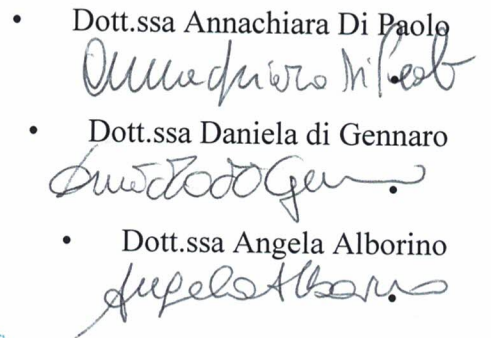 • Dott.ssa Annachiara Di Paolo
Annachiara Di Paolo
• Dott.ssa Daniela di Gennaro
• Dott.ssa Angela Alborino
Angela Alborino